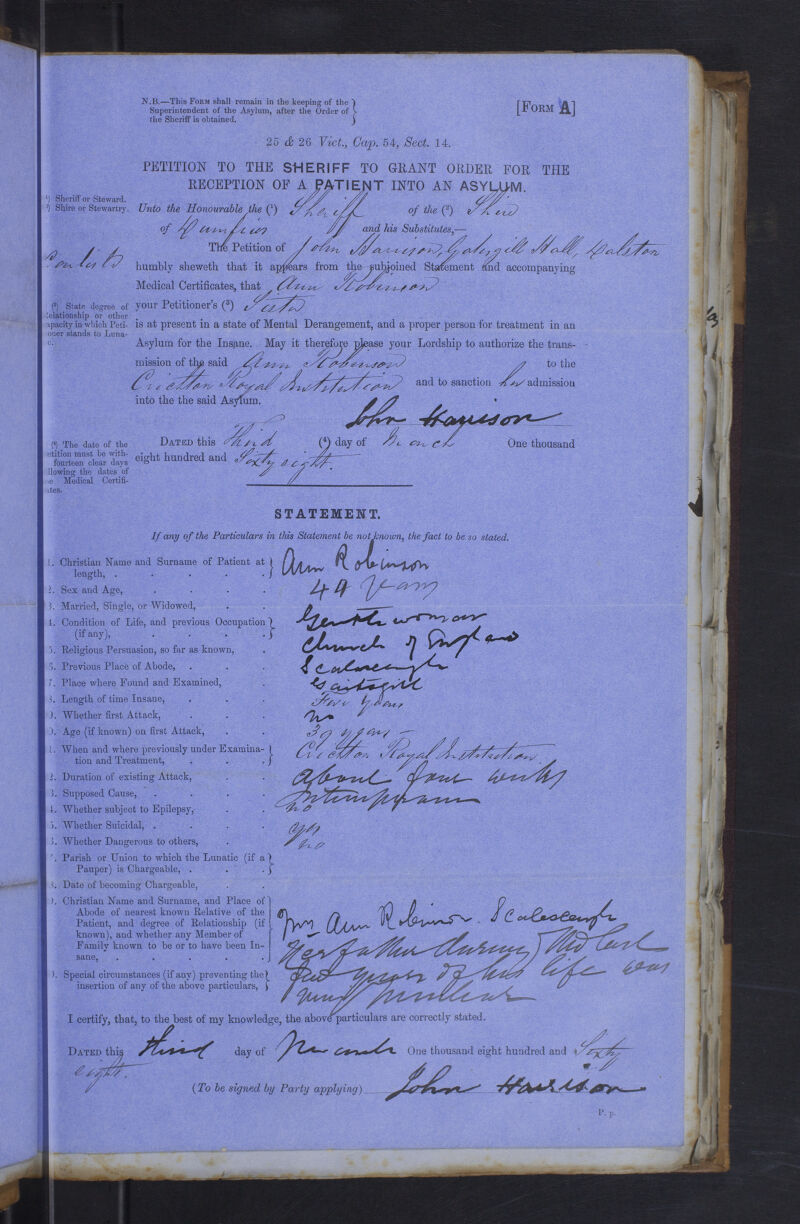 N.B.—This Form shall remain in the keeping of the
Superintendent of the Asylum, after the Order of
the Sheriff is obtained.
[Form A]
25 & 26 Vict., Cap. 54, Sect. 14.
PETITION TO THE SHERIFF TO GRANT ORDER FOR THE
RECEPTION OF A PATIENT INTO AN ASYLUM.
(¹) Sheriff or Steward.
(²) Shire or Stewartry.
Unto the Honourable the (¹) Sheriff of the (²) Shire
of Dumfries and his Substitutes,—
The Petition of John Harrison, Hall, Dalston
humbly sheweth that it appears from the subjoined Statement and accompanying
Medical Certificates, that Ann Robinson
(³) State degree of
Relationship or other
capacity in which Peti-
oner stands to Luna-
c.
your Petitioner's (³) Sister
is at present in a state of Mental Derangement, and a proper person for treatment in an
Asylum for the Insane. May it therefore please your Lordship to authorize the trans-
mission of the said Ann Robinson to the
Crichton Royal Institution and to sanction her admission
into the the said Asylum.
John Harrison
(⁴) The date of the
etition must be with-
fourteen clear days
llowing the dates of
e Medical Certifi-
ates.
Dated this third (⁴) day of March One thousand
eight hundred and Sixty eight.
STATEMENT.
If any of the Particulars in this Statement be not known, the fact to be so stated.
1. Christian Name and Surname of Patient at length, . Ann Robinson
2. Sex and Age, 44 years
3. Married, Single, or Widowed,
4. Condition of Life, and previous Occupation (if any), Gentlewoman
5. Religious Persuasion, so far as known, Church of England
6. Previous Place of Abode, Scalesceugh
7. Place where Found and Examined, Gaitsgill
8. Length of time Insane, years
9. Whether first Attack, No
0. Age (if known) on first Attack, 39 years
1. When and where previously under Examination and Treatment, Crichton Royal Institution.
2. Duration of existing Attack, About four weeks
3. Supposed Cause, Intemperance
4. Whether subject to Epilepsy, no
5. Whether Suicidal, yes
6. Whether Dangerous to others, no
7. Parish or Union to which the Lunatic (if a Pauper) is Chargeable,
8. Date of becoming Chargeable,
9. Christian Name and Surname, and Place of
Abode of nearest known Relative of the
Patient, and degree of Relationship (if
known), and whether any Member of
Family known to be or to have been In-
sane,
Mrs Ann Robinson Scalesceugh
Her father during the last
few years of his life was
very peculiar
0. Special circumstances (if any) preventing the
insertion of any of the above particulars,
I certify, that, to the best of my knowledge, the above particulars are correctly stated.
Dated this third day of March One thousand eight hundred and Sixty
eight.
(To be signed by Party applying) John Harrison
P. p.